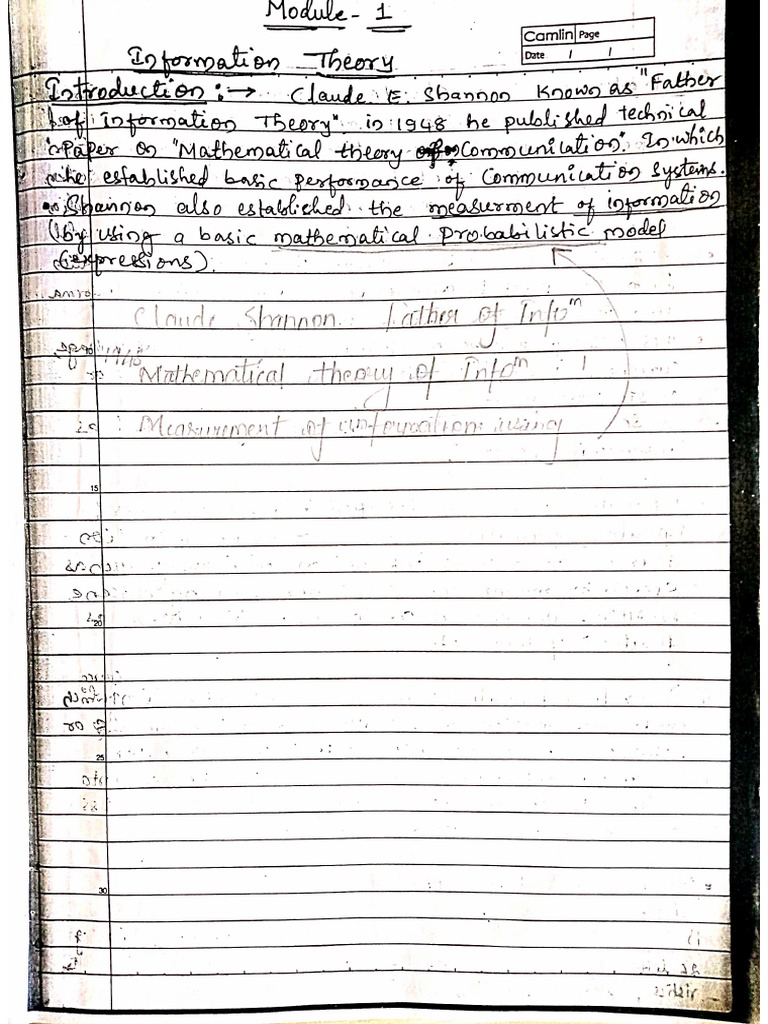 Module - 1
Camlin Page
Date / /
Information Theory
Introduction :→ Claude E. Shannon Known as "Father
of information Theory". in 1948 he published technical
Paper on "Mathematical theory of Communication". In which
he established basic performance of Communication Systems.
Shannon also established the measurment of information
by using a basic mathematical Probabilistic model
(expressions).
Claude Shannon Father of Infoⁿ
1948
Mathematical theory of Infoⁿ
Measurement of information using
15
20
25
30